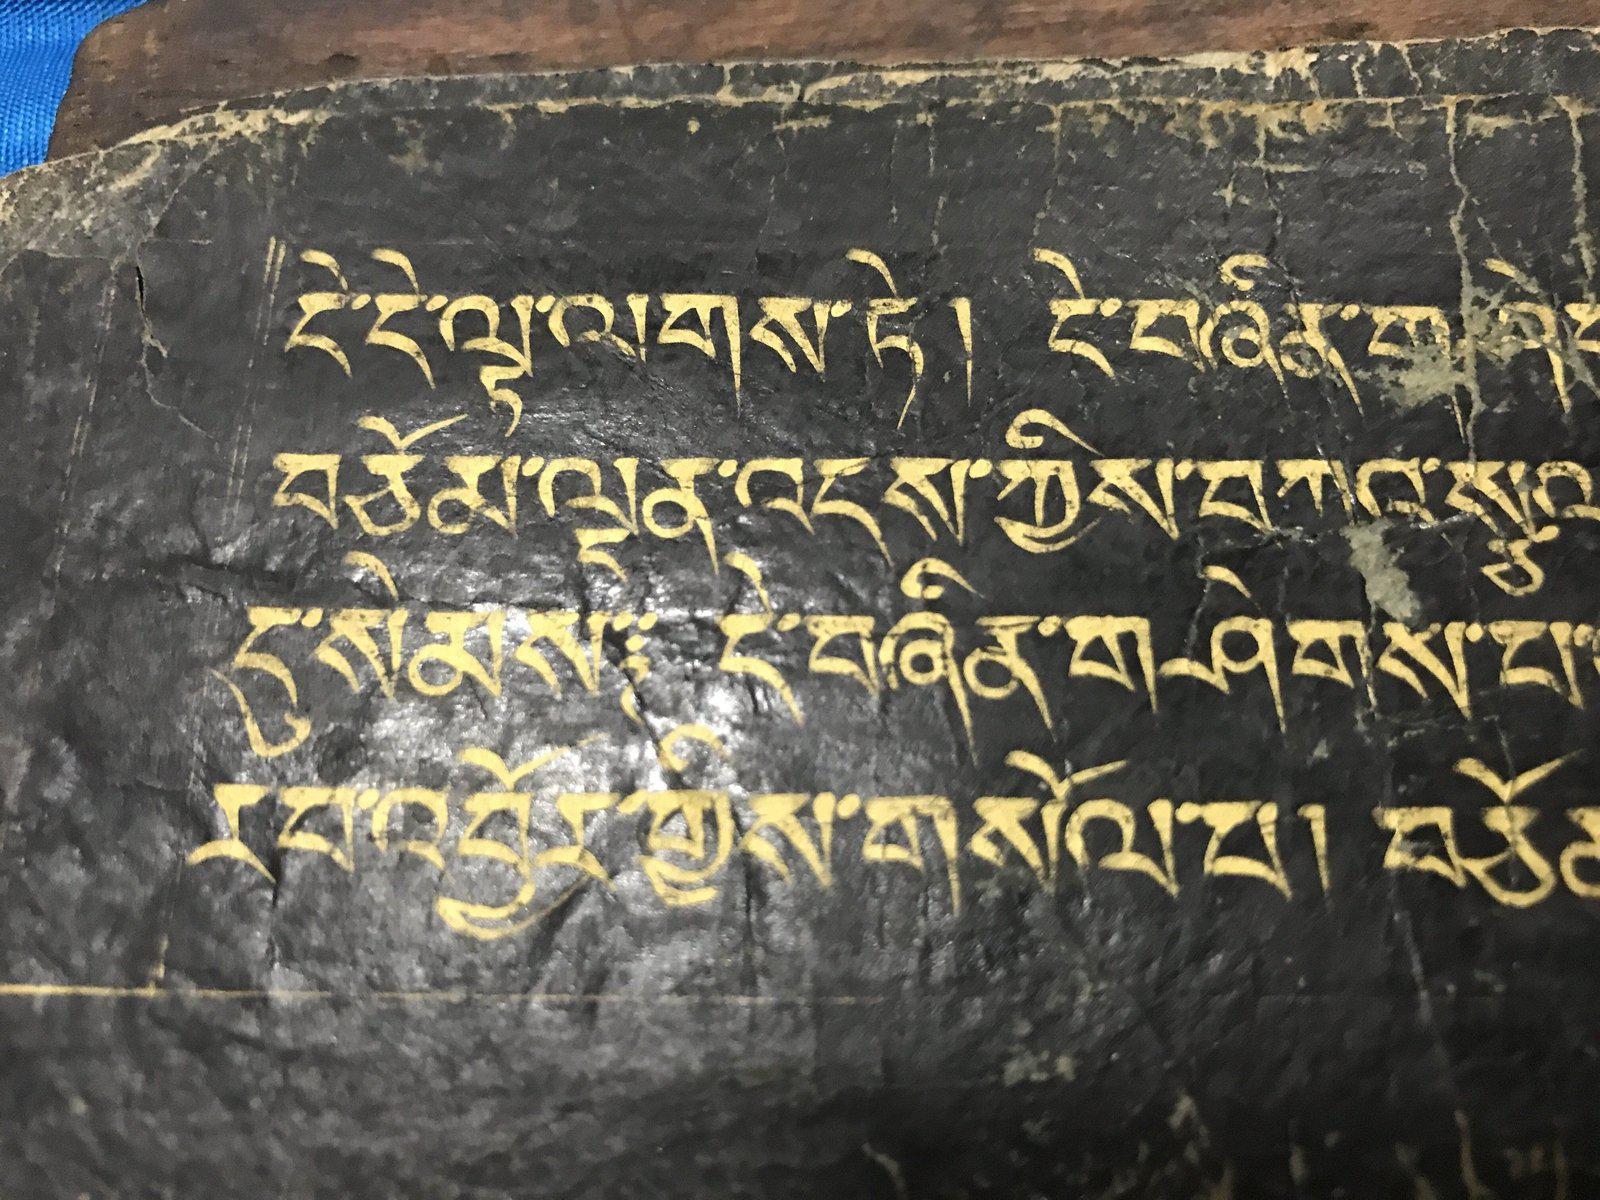 དེ་དེ་ལྟ་ལགས་ཏེ། དེ་བཞིན་གཤེ
བཅོམ་ལྡན་འདས་ཀྱིས་བཀའ་སྩལ
དུ་སེམས༔ དེ་བཞིན་གཤེགས་པ
ར་བ་འབྱོར་གྱིས་གསོལ་པ། བཅོམ